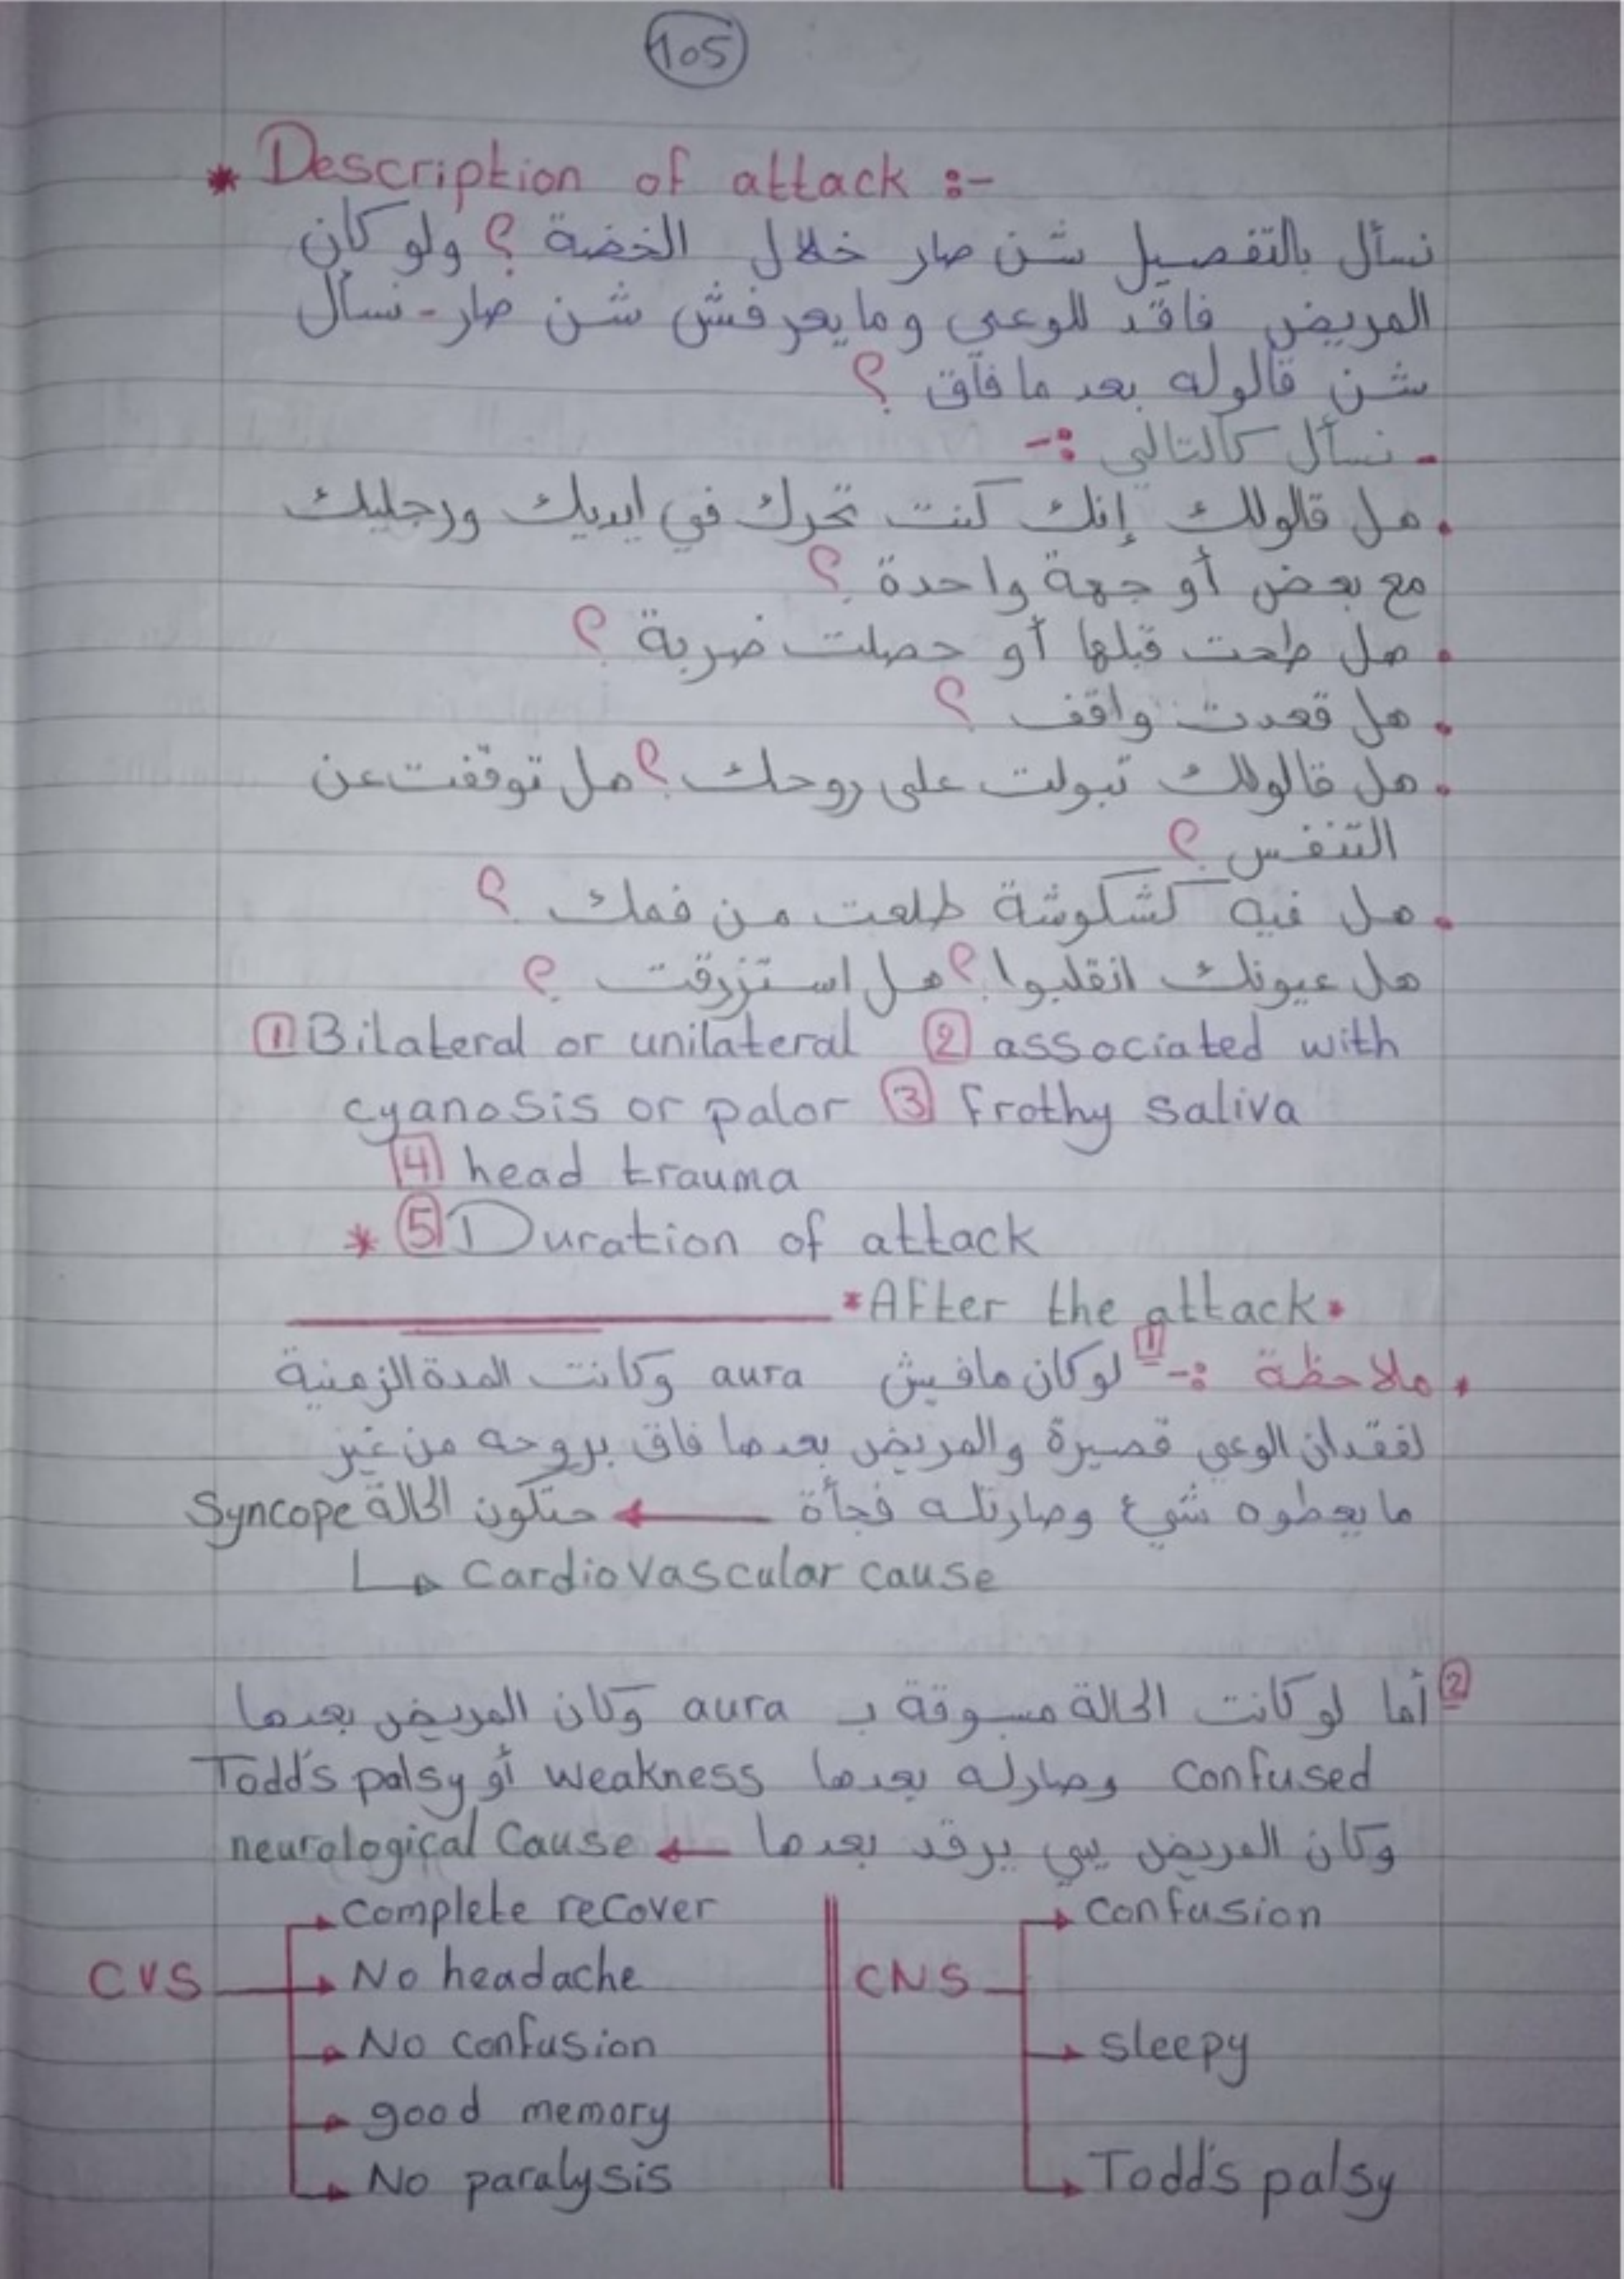 105
* Description of attack :-
نسأل بالتفصيل شن صار خلال الخضة ؟ ولو كان
المريض فاقد للوعي وما يعرفش شن صار - نسأل
شن قالوله بعد ما فاق ؟
- نسأل كالتالي :-
• هل قالولك إنك كنت تحرك في ايديك ورجليك
مع بعض أو جهة واحدة ؟
• هل طحت قبلها أو حصلت ضربة ؟
• هل قعدت واقف ؟
• هل قالولك تبولت على روحك ؟ هل توقفت عن
التنفس ؟
• هل فيه كشكوشة طلعت من فمك ؟
هل عيونك انقلبوا ؟ هل استزرقت ؟
1 Bilateral or unilateral 2 associated with
cyanosis or palor 3 frothy saliva
4 head trauma
* 5 Duration of attack
* After the attack •
• ملاحظة :- 1 لو كان مافيش aura وكانت المدة الزمنية
لفقدان الوعي قصيرة والمريض بعدها فاق بروحه من غير
ما يعطوه شيء وصارتله فجأة ← حتكون الحالة Syncope
↳ cardiovascular cause
2 أما لو كانت الحالة مسبوقة بـ aura وكان المريض بعدها
confused وصارله بعدها weakness أو Todd's palsy
وكان المريض يبي يرقد بعدها ← neurological cause
CVS → complete recover
→ No headache
→ No confusion
→ good memory
→ No paralysis
CNS → confusion
→ sleepy
→ Todd's palsy